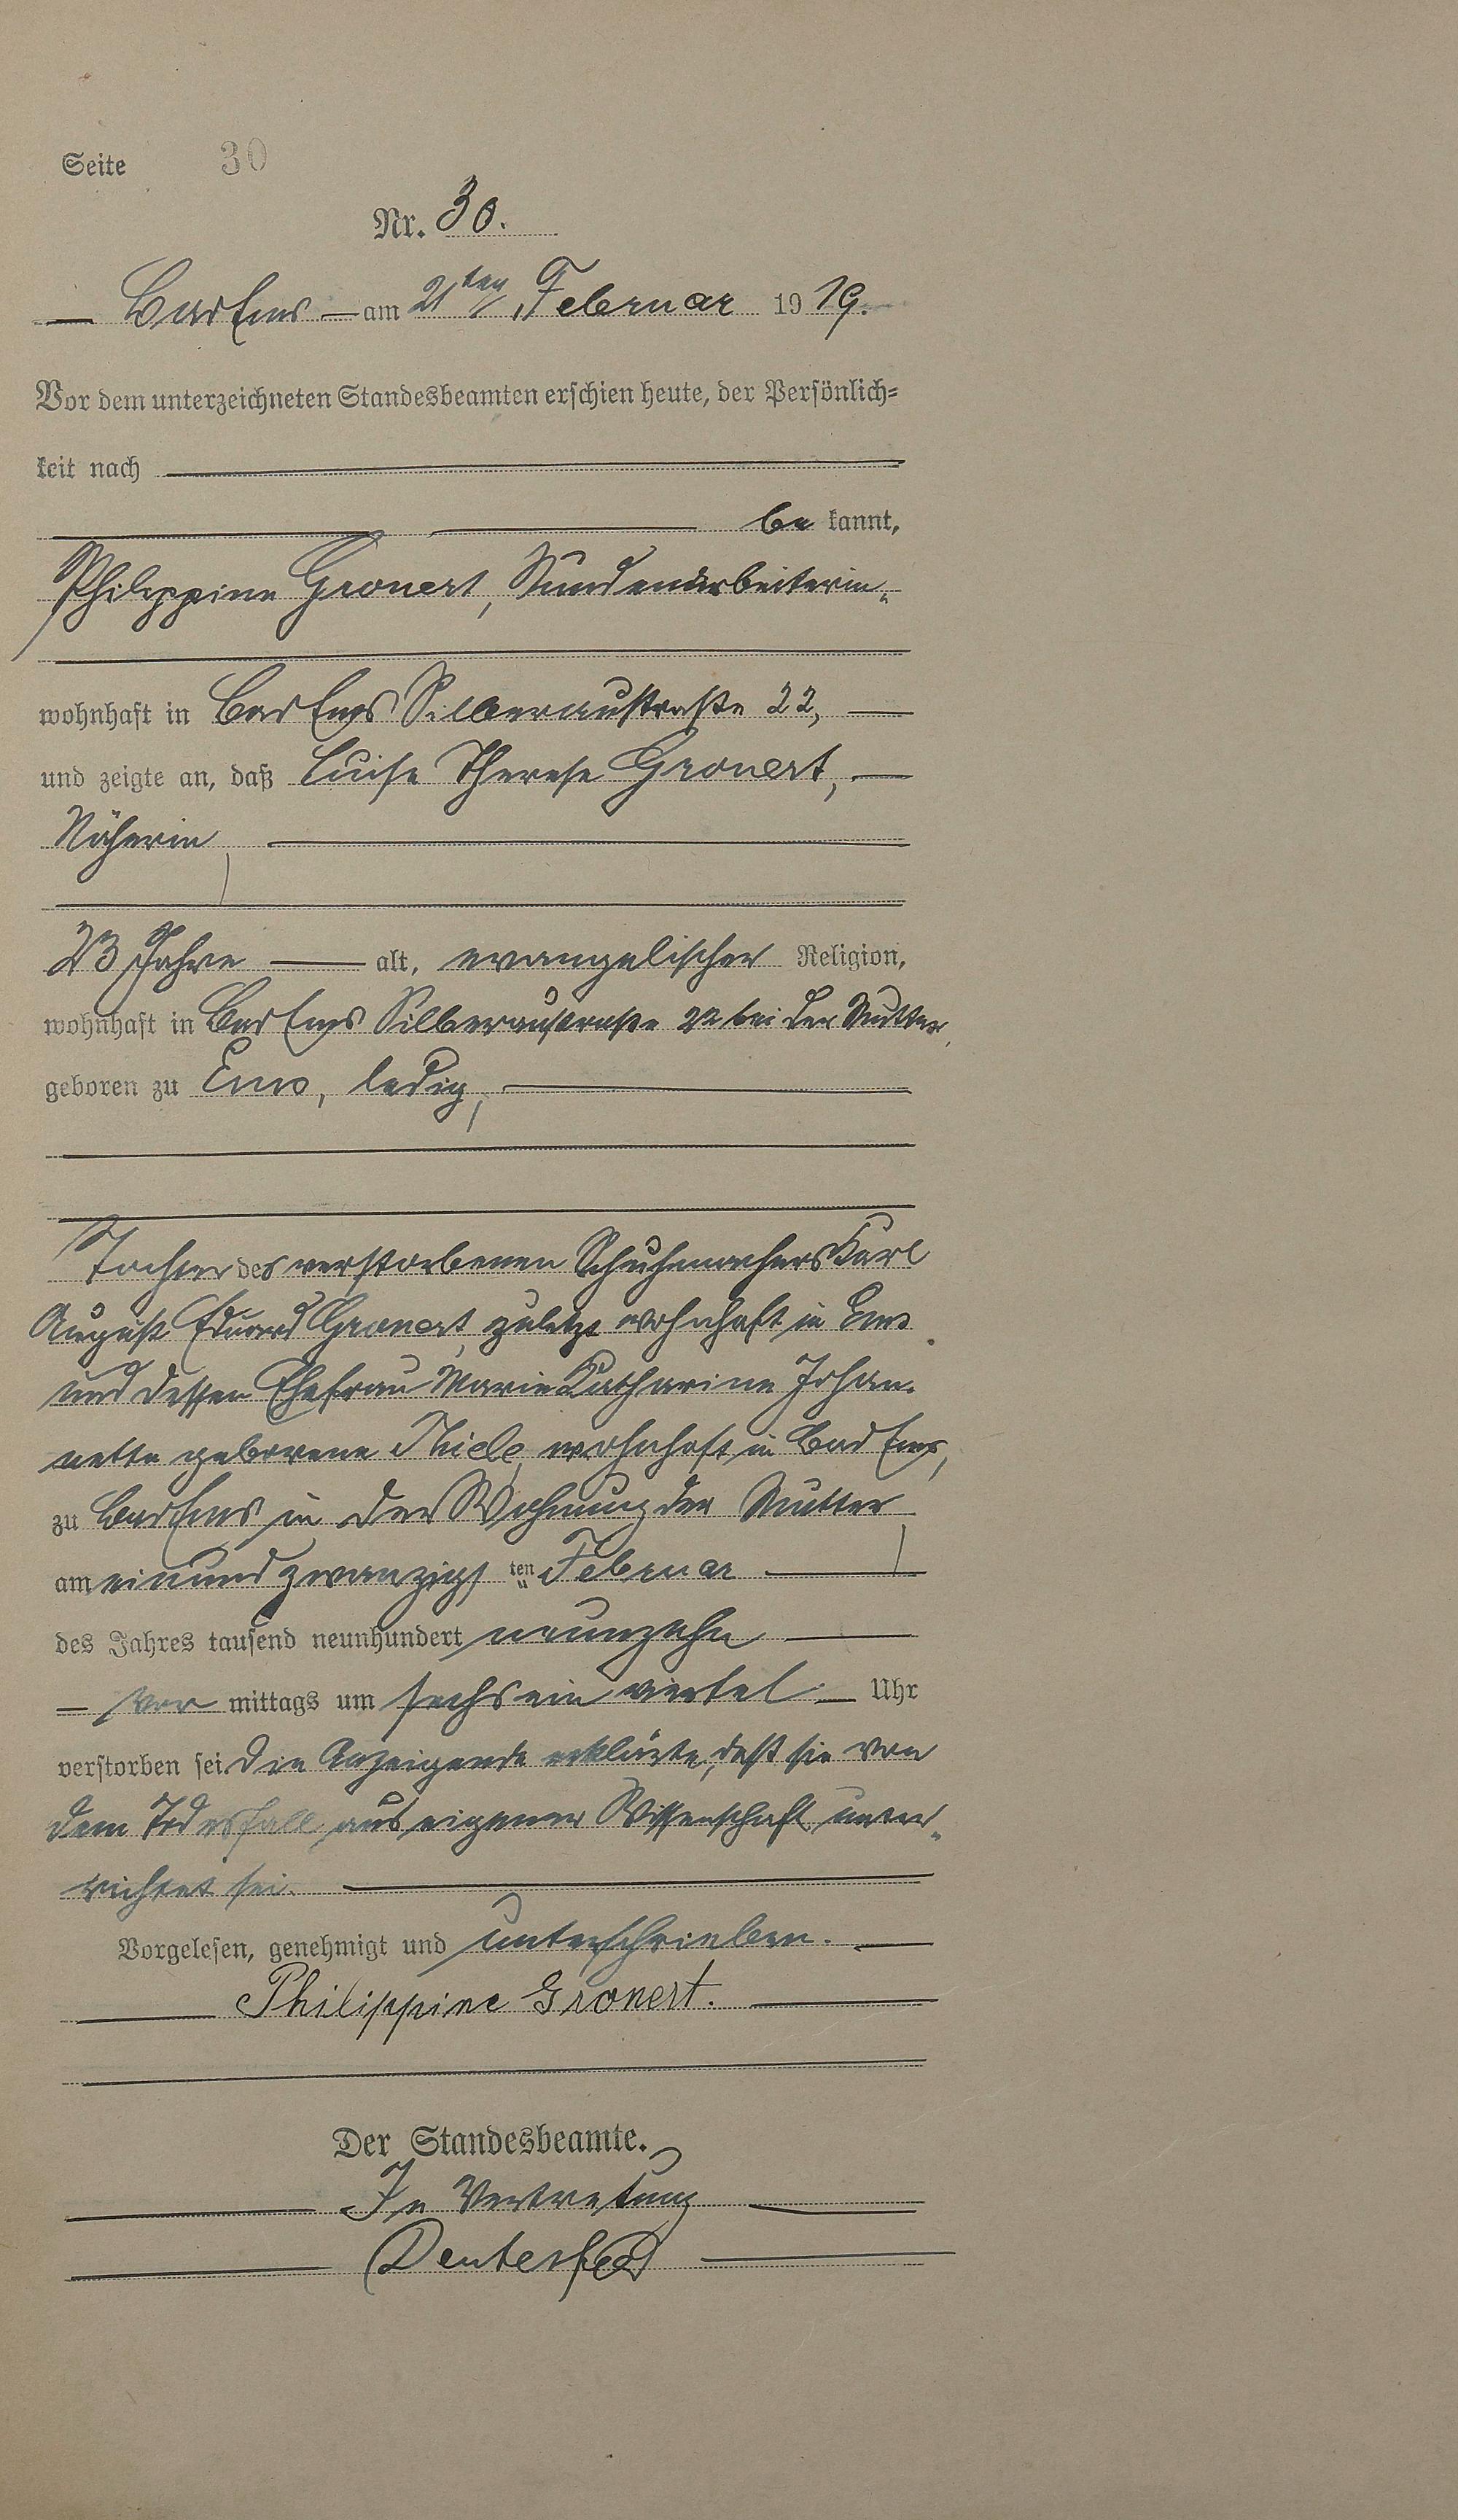 Seite 30
Nr. 30.
Bad Ems am 21ten Februar 1919.
Vor dem unterzeichneten Standesbeamten erschien heute, der Persönlich-
keit nach
be kannt,
Philippine Gronert, Stundenarbeiterin,
wohnhaft in Bad Ems Silberaustraße 22,
und zeigte an, daß Luise Therese Gronert,
Näherin,
23 Jahre alt, evangelischer Religion,
wohnhaft in Bad Ems Silberaustraße 22 bei der Mutter,
geboren zu Ems, ledig,
Tochter des verstorbenen Schuhmachers Karl
August Eduard Gronert, zuletzt wohnhaft in Ems
und dessen Ehefrau Marie Katharine Johan-
nette geborene Thiele, wohnhaft in Bad Ems,
zu Bad Ems in der Wohnung der Mutter,
am einundzwanzigsten Februar
des Jahres tausend neunhundert neunzehn
vor mittags um sechs ein viertel Uhr
verstorben sei. Die Anzeigende erklärte, daß sie von
dem Todesfall aus eigener Wissenschaft unter-
richtet sei.
Vorgelesen, genehmigt und unterschrieben.
Philippine Gronert.
Der Standesbeamte.
In Vertretung